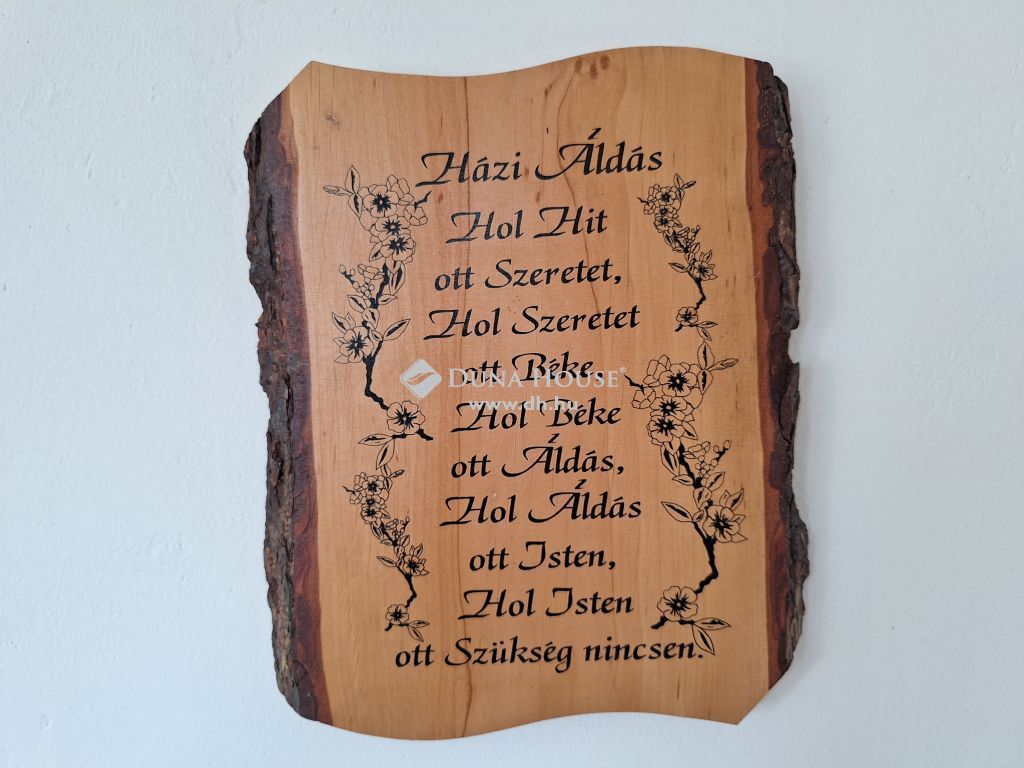 Házi Áldás
Hol Hit
ott Szeretet,
Hol Szeretet
ott Béke,
DUNA HOUSE®
www.dh.hu
Hol Béke
ott Áldás,
Hol Áldás
ott Isten,
Hol Isten
ott Szükség nincsen.